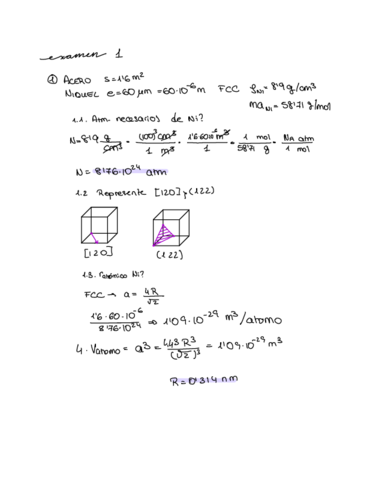 examen 1
① ACERO s=1'6 m²
NIQUEL e=60 μm = 60·10⁻⁶ m FCC ρNi = 8'9 g/cm³
maNi = 58'71 g/mol
1.1. Atm necesarios de Ni?
N = 8'9 g/cm³ · (100)³ cm³/1 m³ · 1'6·60·10⁻⁶ m³/1 = 1 mol/58'71 g · NA atm/1 mol
N = 8'76·10²⁴ atm
1.2 Represente [120] y (122)
[120] (122)
1.3. Ni?
FCC → a = 4R/√2
1'6·60·10⁻⁶/8'76·10²⁴ ⇒ 1'09·10⁻²⁹ m³/atomo
4·Vatomo = a³ = 4³ R³/(√2)³ = 1'09·10⁻²⁹ m³
R = 0'314 nm